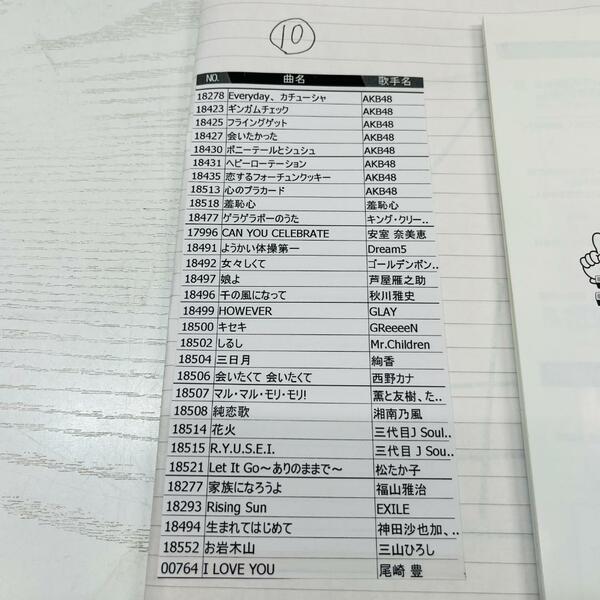 10
NO. 曲名 歌手名
18278 Everyday、カチューシャ AKB48
18423 ギンガムチェック AKB48
18425 フライングゲット AKB48
18427 会いたかった AKB48
18430 ポニーテールとシュシュ AKB48
18431 ヘビーローテーション AKB48
18435 恋するフォーチュンクッキー AKB48
18513 心のプラカード AKB48
18518 羞恥心 羞恥心
18477 ゲラゲラポーのうた キング・クリー..
17996 CAN YOU CELEBRATE 安室 奈美恵
18491 ようかい体操第一 Dream5
18492 女々しくて ゴールデンボン..
18497 娘よ 芦屋雁之助
18496 千の風になって 秋川雅史
18499 HOWEVER GLAY
18500 キセキ GReeeeN
18502 しるし Mr.Children
18504 三日月 絢香
18506 会いたくて 会いたくて 西野カナ
18507 マル・マル・モリ・モリ! 薫と友樹、た..
18508 純恋歌 湘南乃風
18514 花火 三代目 J Soul..
18515 R.Y.U.S.E.I. 三代目 J Sou..
18521 Let It Go～ありのままで～ 松たか子
18277 家族になろうよ 福山雅治
18293 Rising Sun EXILE
18494 生まれてはじめて 神田沙也加、..
18552 お岩木山 三山ひろし
00764 I LOVE YOU 尾崎 豊